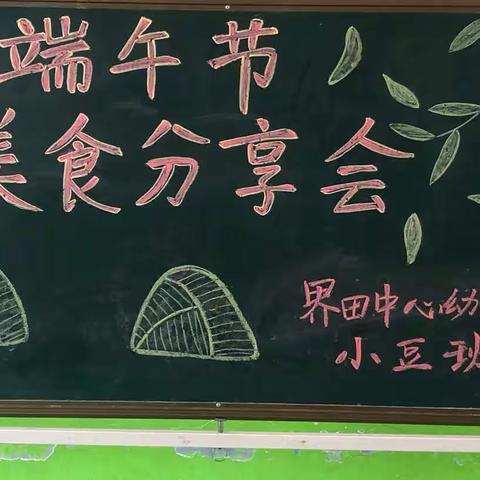 端午节
美食分享会
界田中心幼
小豆班